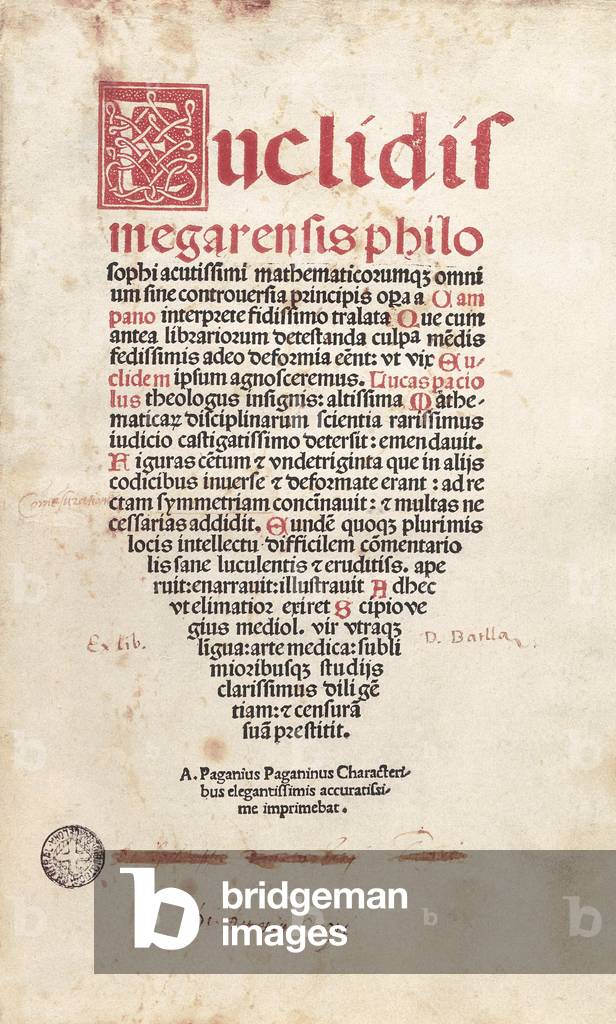 Euclidis
megarensis philo
sophi acutissimi mathematicorumqȝ omni
um sine controversia principis oꝑa a Cam
pano interprete fidissimo tralata Que cum
antea librariorum detestanda culpa mēdis
fedissimis adeo deformia eēnt: vt vix Eu⸗
clidem ipsum agnosceremus. Lucas pacio
lus theologus insignis: altissima Mathe⸗
maticaꝝ disciplinarum scientia rarissimus
iudicio castigatissimo detersit: emendauit.
Figuras cētum ⁊ vndetriginta que in alijs
codicibus inuerse ⁊ deformate erant : ad re
ctam symmetriam concinauit: ⁊ multas ne
cessarias addidit. Eundē quoqȝ plurimis
locis intellectu difficilem cōmentario
lis sane luculentis ⁊ eruditiss. ape
ruit: enarrauit: illustrauit Adhec
vt elimatior exiret Scipio ve
gius mediol. vir vtraqȝ
līgua: arte medica: subli
mioribusqȝ studijs
clarissimus diligē
tiam: ⁊ censurā
suā prestitit.
Ex Lib.
D. Barlla
A. Paganius Paganinus Characteri⸗
bus elegantissimis accuratissi⸗
me imprimebat.
b bridgeman
images